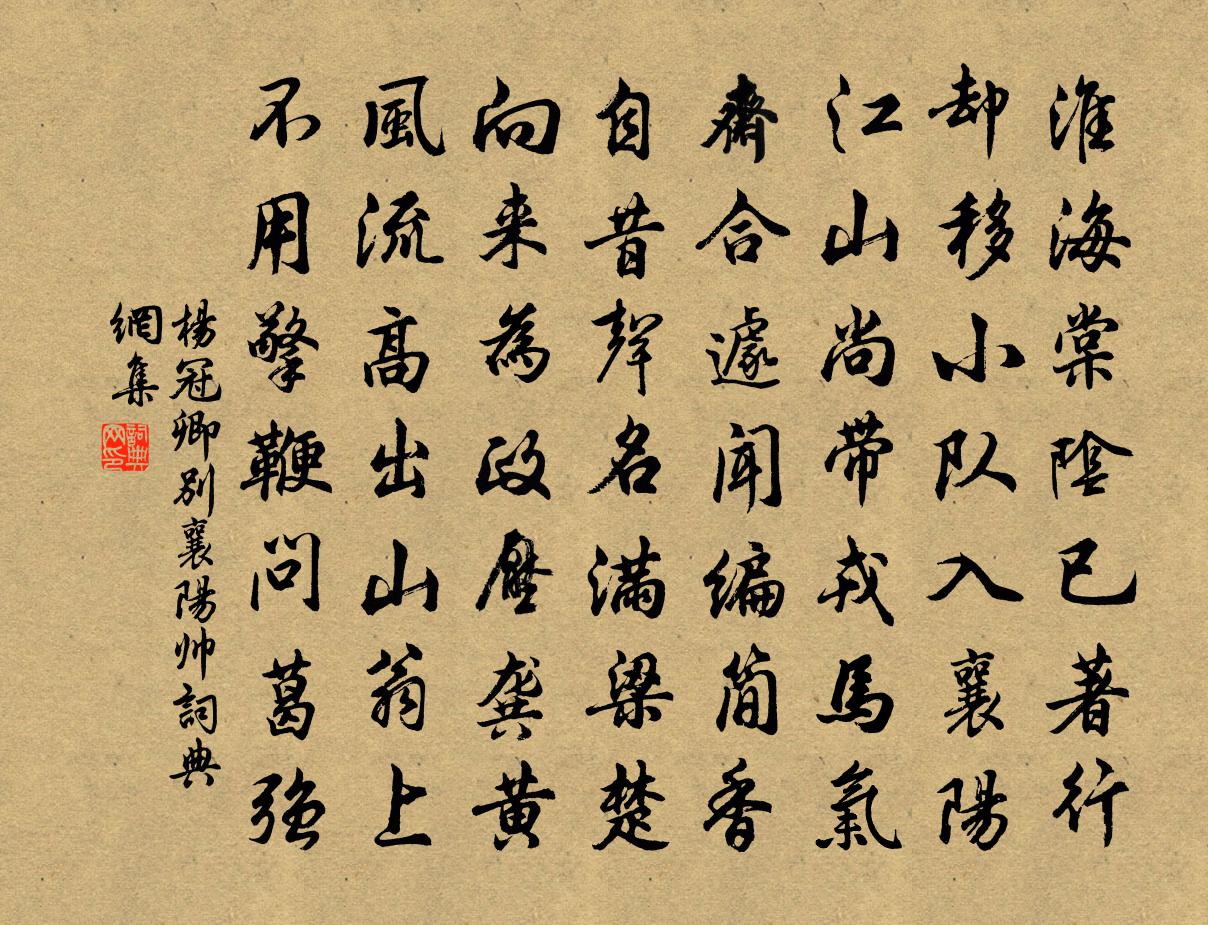 淮海棠陰已著行
却移小队入襄陽
江山尚带戎馬氣
齋合遽聞编简香
自昔聲名满梁楚
向来為政壓龚黄
風流高出山翁上
不用擎鞭问葛强
楊冠卿别襄陽帅詞典
網集
詞典网印